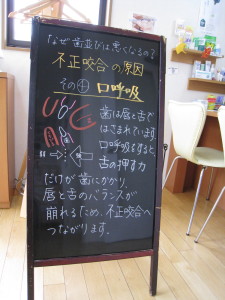 なぜ歯並びは悪くなるの？
不正咬合の原因
その④ 口呼吸
歯は唇と舌で
はさまれています。
口呼吸をすると
舌の押す力
だけが歯にかかり、
唇と舌のバランスが
崩れるため、不正咬合へ
つながります。